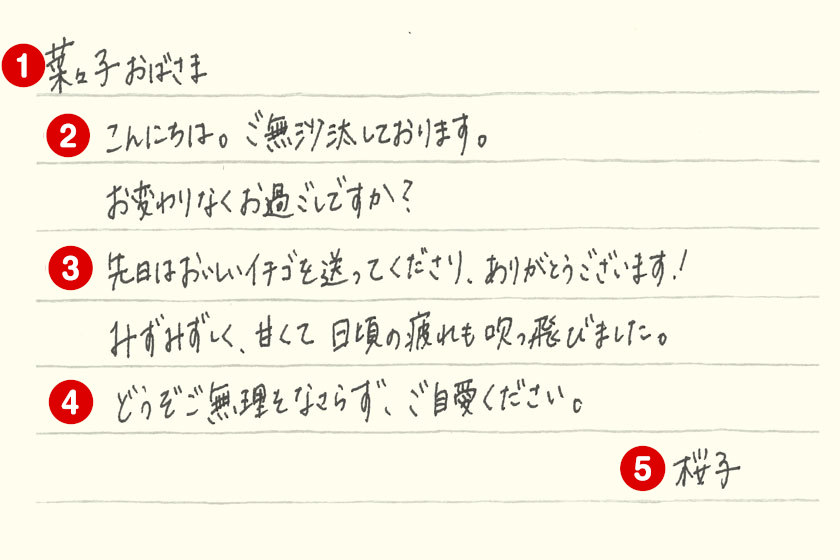 1 菜々子おばさま
2 こんにちは。ご無沙汰しております。
お変わりなくお過ごしですか?
3 先日はおいしいイチゴを送ってくださり、ありがとうございます!
みずみずしく、甘くて日頃の疲れも吹っ飛びました。
4 どうぞご無理をなさらず、ご自愛ください。
5 桜子